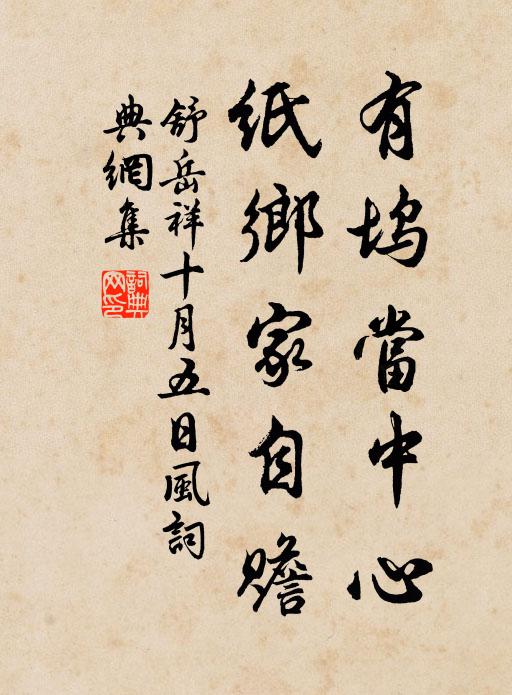 有坞當中心
紙鄉家自贍
舒岳祥十月五日風詞
典網集
詞典網印